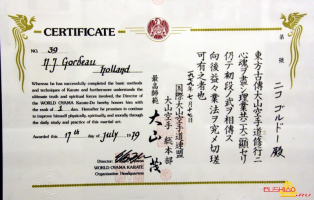 CERTIFICATE
NO. 39
N.J. Gordeau
Holland
Whereas he has successfully completed the basic methods
and techniques of Karate and furthermore understands the
ultimate truth and spiritual forces involved, the Director of
the WORLD OYAMA Karate-Do hereby honors him with
the rank of 1 dan. Hereafter he promises to continue
to improve himself physically, spiritually, and morally through
the daily study and practice of this martial art.
Awarded this 17th day of July 1979
Director
WORLD OYAMA KARATE
Organization Headquarters
第 號
ニコ ゴルドー 殿
東方古傳大山空手道修行ニ
心魂ヲ盡シ理業共ニ大ニ顕セリ
仍テ初段ノ武ヲ相傳ス
向後益々業法ヲ究メ切瑳
可有之者也
国際大山空手道連盟
大山空手 総本部
最高師範 大山 茂
BUSHIDO